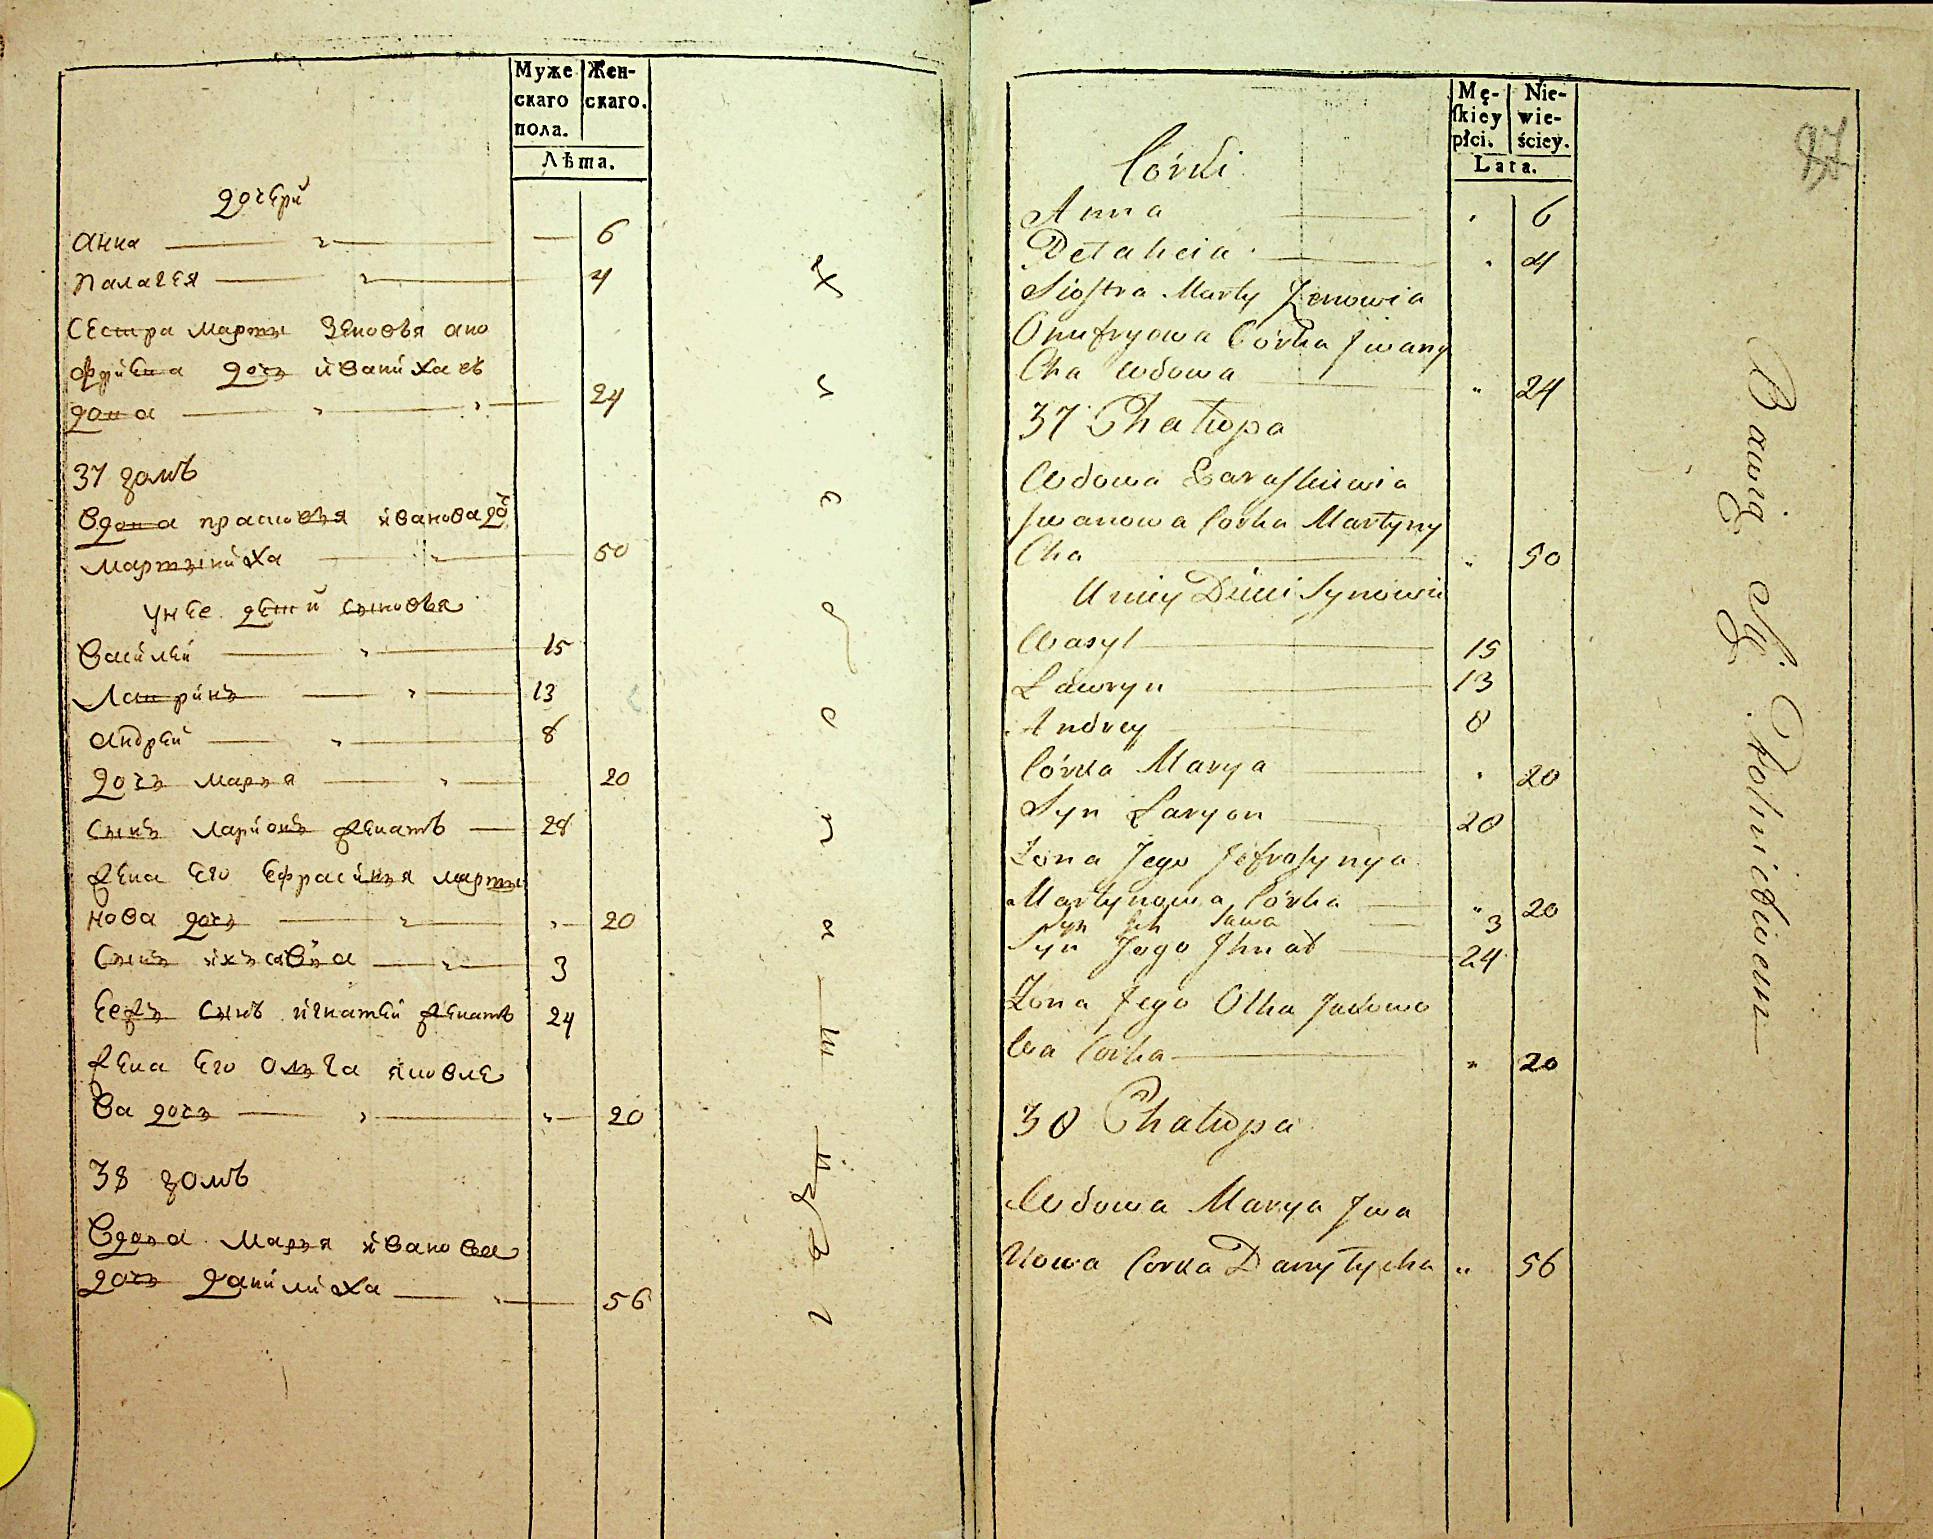 Муже
скаго
пола.
Жен-
скаго.
Лѣта.
дочери
Анна 6
Палагея 4
Сестра Марты Зеновья ано
фриева дочь иваниха въ
дова 24
37 домъ
Вдова прасковья иванова доч
Мартыниха 50
унее дети сыновья
Василей 15
Лавринъ 13
Андрей 8
дочь марья 20
Сынъ Ларионъ женатъ 28
жена его ефрасинья марты
нова дочь 20
Сынъ ихъ сава 3
Сынъ игнатей женатъ 24
жена его Ольга яковле
ва дочь 20
38 домъ
Вдова Марья иванова
дочь даниилиха 56
Mę-
ſkiey
płci.
Nie-
wie-
ściey.
Lata.
37
Córki
Anna " 6
Pelaheia " 4
Siostra Marty Zenowia
Onufryowa Córka Jwany
Cha Wdowa " 24
37 Chałupa
Wdowa Paraskiewia
Jwanowa Corka Martyny
Cha " 50
U niey Dzieci Synowie
Wasyl 15
Ławryn 13
Andrey 8
Córka Marya " 20
Syn Łaryon 28
Żona Jego Jefrosynya
Martynowa Córka " 20
Syn Ich Sawa 3
Syn Jego Jhnat 24
Żona Jego Olha Jakowo
wa Corka " 20
38 Chałupa
Wdowa Marya Jwa
Nowa Corka Danyłycha " 56
Bawią Się Rolnictwem